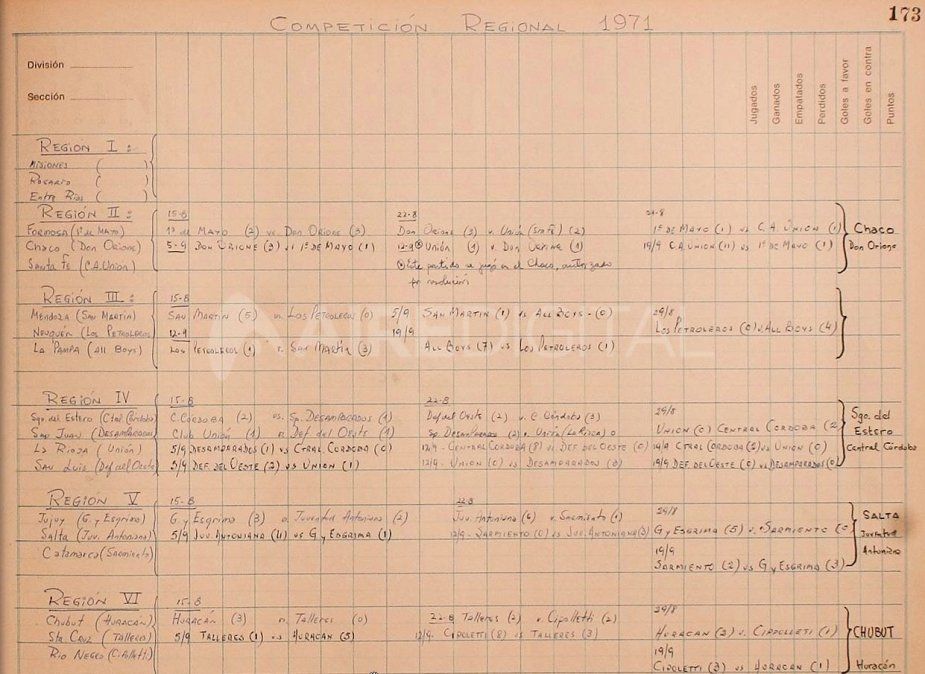 173
COMPETICIÓN REGIONAL 1971
División
Sección
Jugados
Ganados
Empatados
Perdidos
Goles a favor
Goles en contra
Puntos
REGION I :
MISIONES ( )
ROSARIO ( )
Entre Ríos ( )
REGIÓN II :
15-8
22-8
FORMOSA (1º de MAYO)
1º de MAYO (2) vs. DON ORIONE (3)
DON ORIONE (3) v. UNIÓN (STA FÉ) (2)
1º DE MAYO (1) vs C.A. UNION (1)
CHACO (DON ORIONE)
5-9 DON ORIONE (3) vs 1º DE MAYO (1)
12-9 UNIÓN (1) v. DON ORIONE (1)
19/9 C.A. UNION (11) vs 1º DE MAYO (1)
SANTA FE (C.A. UNION)
Este partido se jugó en el Chaco, autorizado
por resolución
CHACO
DON ORIONE
REGIÓN III :
15-8
MENDOZA (SAN MARTIN)
SAN MARTIN (5) v. LOS PETROLEROS (0)
5/9 SAN MARTIN (1) vs ALL BOYS - (0)
29/8
NEUQUÉN (LOS PETROLEROS)
12-9
19/9
LOS PETROLEROS (0) v. ALL BOYS (4)
LA PAMPA (All BOYS)
LOS PETROLEROS (1) v. SAN MARTIN (3)
ALL BOYS (7) vs LOS PETROLEROS (1)
AIRE DIGITAL
REGION IV
15-8
22-8
Sgo. del ESTERO (Ctral. Córdoba)
C. CORDOBA (2) vs. Sp. DESAMPARADOS (1)
Def. del Oeste (2) v. C. Córdoba (3)
29/8
UNION (0) CENTRAL CORDOBA (2)
SAN JUAN (DESAMPARADOS)
Club UNION (1) v. Def. del OESTE (1)
Sp. DESAMPARADOS (2) v. UNION (LA RIOJA) 0
LA RIOJA (UNIÓN)
5/9 DESAMPARADOS (1) vs CTRAL CORDOBA (0)
12/9 - CENTRAL CORDOBA (8) vs DEF. DEL OESTE (0)
19/9 CTRAL CORDOBA (2) vs UNION (0)
SAN LUIS (Def. del Oeste)
5/9 DEF. DEL OESTE (2) vs UNION (1)
12/9 - UNION (0) vs DESAMPARADOS (3)
19/9 DEF. DEL OESTE (0) vs DESAMPARADOS (0)
Sgo. del
ESTERO
CENTRAL CÓRDOBA
REGION V
15-8
22-8
Jujuy (G. y Esgrima)
G. y Esgrima (3) v. Juventud Antoniana (2)
Juv. Antoniana (6) v. Sarmiento (1)
29/8
G y ESGRIMA (5) v. SARMIENTO (0)
Salta (Juv. Antoniana)
5/9 JUV. ANTONIANA (4) vs G y ESGRIMA (1)
12/9 - SARMIENTO (0) vs JUV. ANTONIANA (3)
Catamarca (Sarmiento)
19/9
SARMIENTO (2) vs G y ESGRIMA (3)
SALTA
Juventud
Antoniana
REGION VI
15-8
29/8
Chubut (HURACÁN)
HURACÁN (3) v. Talleres (0)
22-8 Talleres (2) v. Cipolletti (2)
HURACAN (3) v. CIPOLETTI (1)
Sta CRUZ (TALLERES)
5/9 TALLERES (1) vs HURACAN (5)
12/9. CIPOLETTI (8) vs TALLERES (3)
RIO NEGRO (Cipolletti)
19/9
CIPOLETTI (3) vs HURACAN (1)
CHUBUT
Huracán